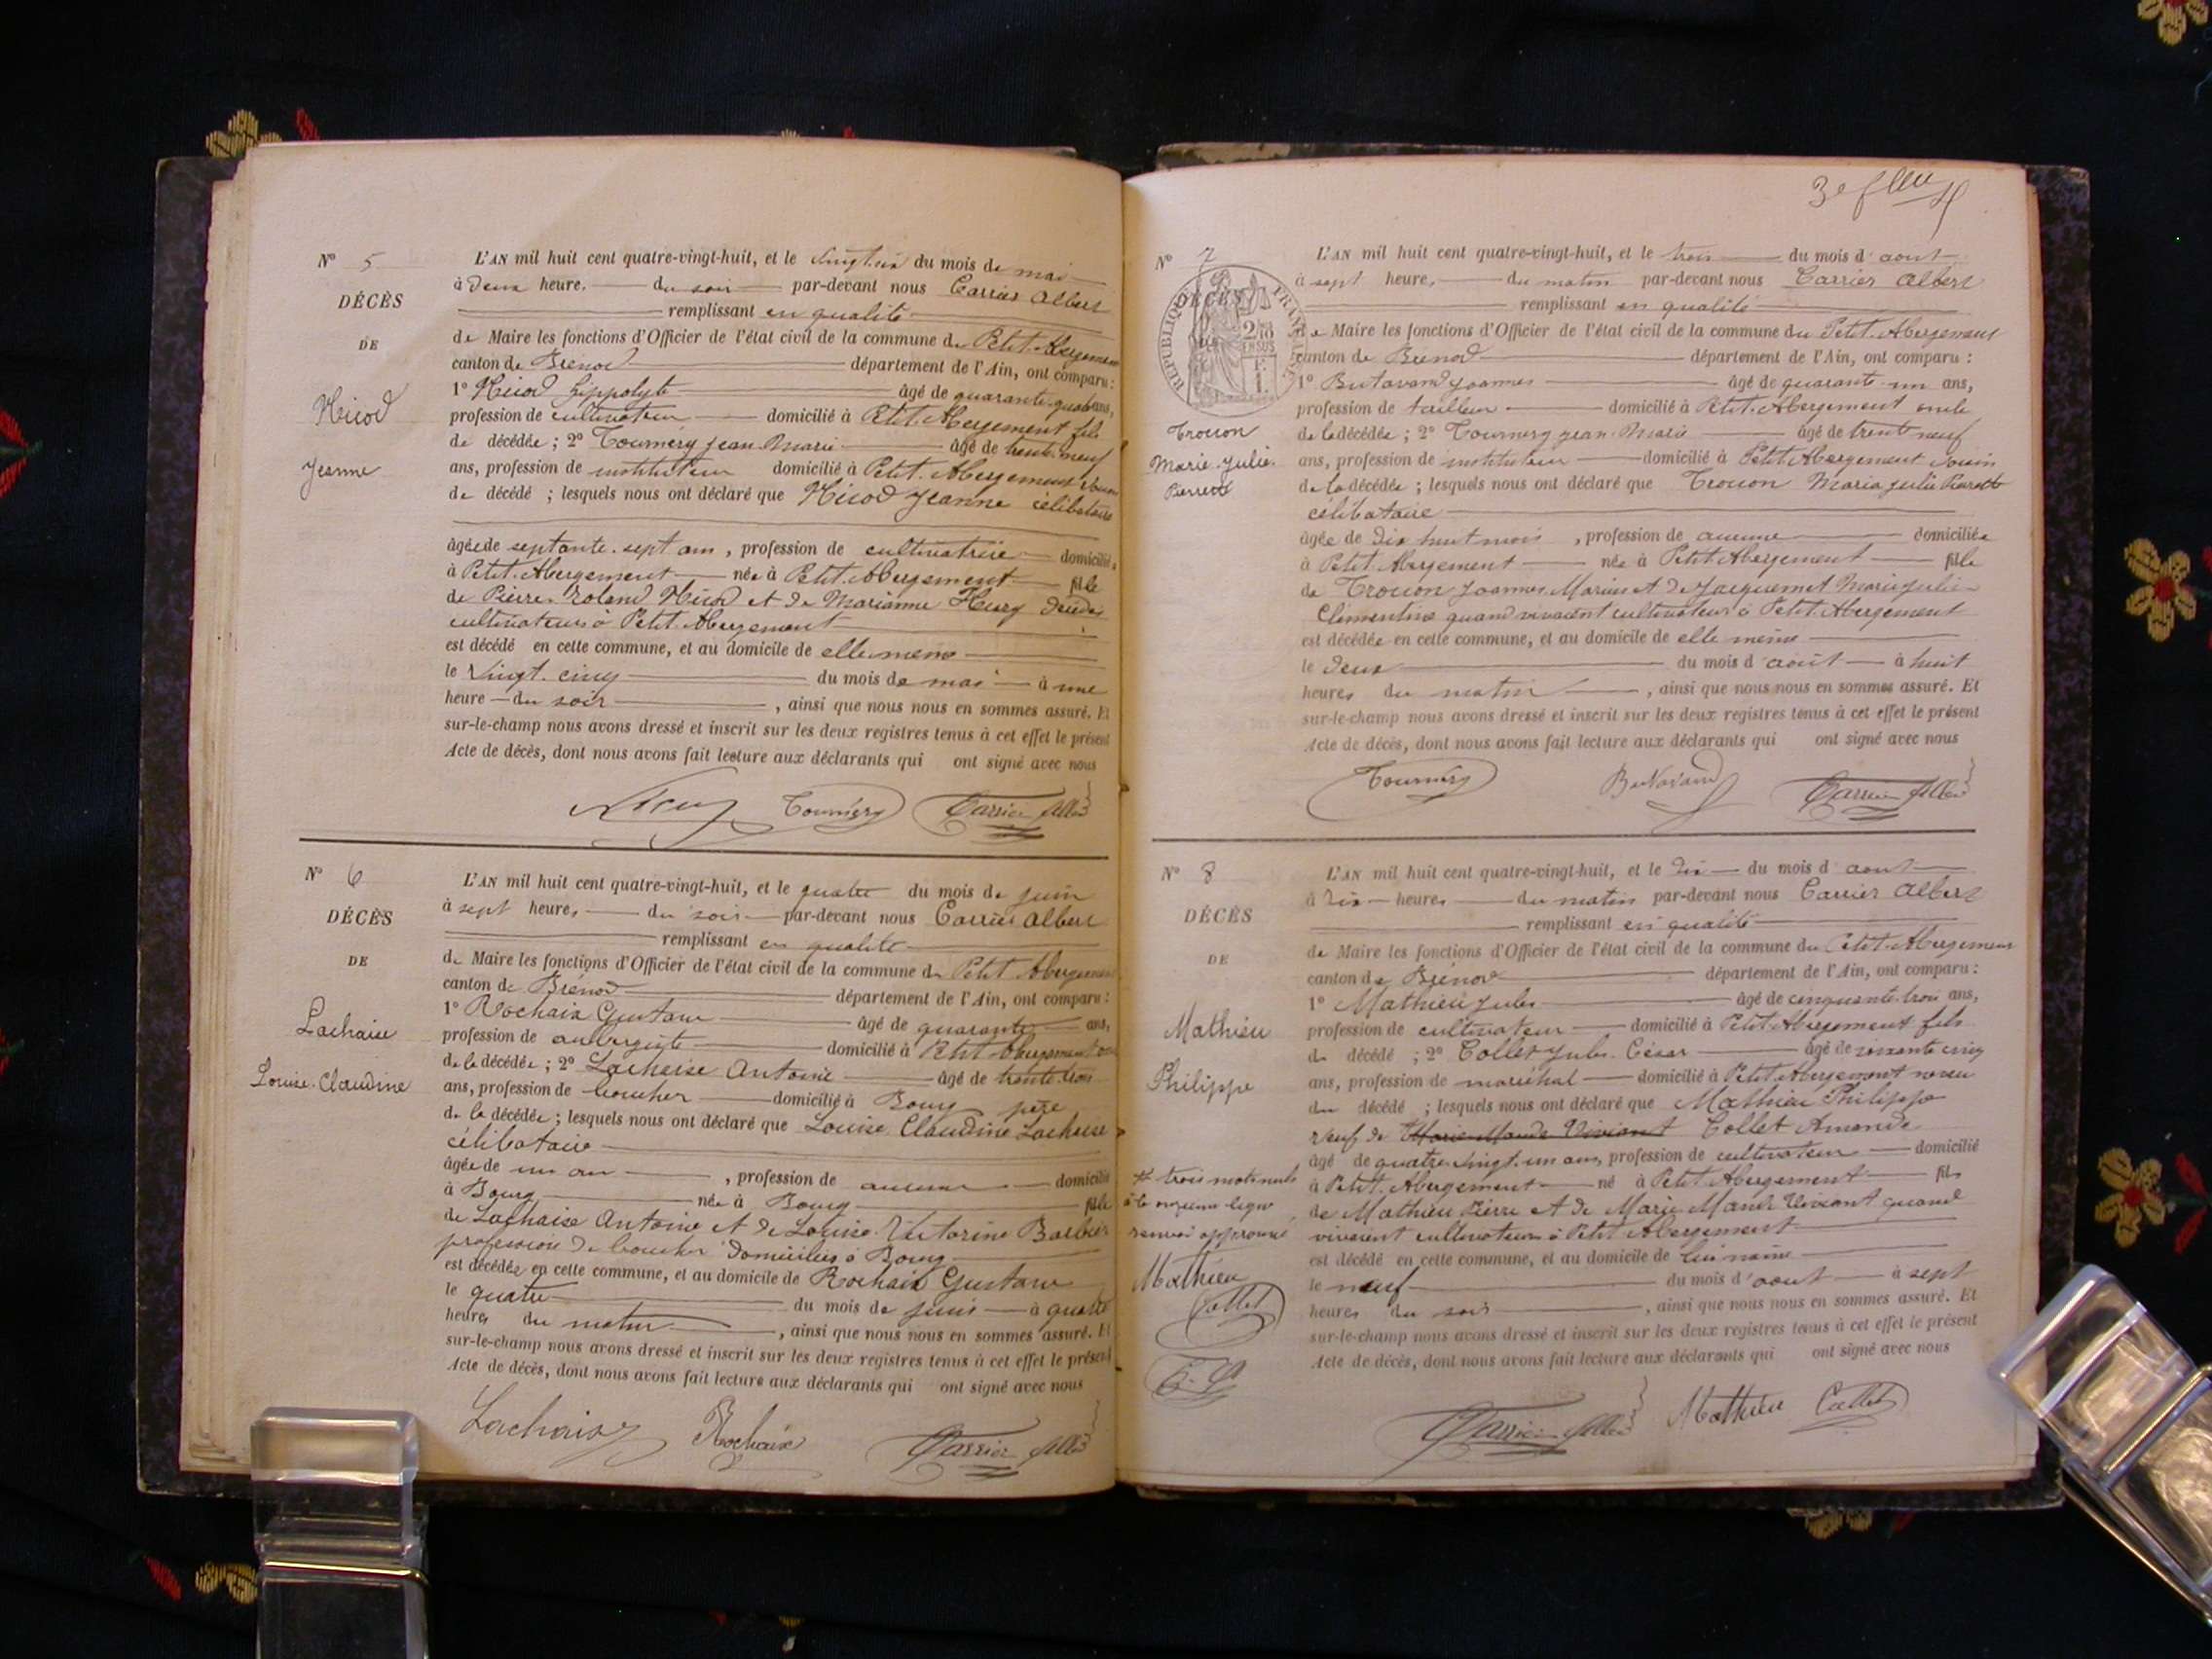 N° 5
DÉCÈS
DE
Nicod
Jeanne
L'AN mil huit cent quatre-vingt-huit, et le vingt-six du mois de mai
à deux heure. du soir par-devant nous Carrier Albert
remplissant en qualité
de Maire les fonctions d'Officier de l'état civil de la commune du Petit-Abergement
canton de Brénod département de l'Ain, ont comparu :
1° Nicod hippolyte âgé de quarante-quatre ans,
profession de cultivateur domicilié à Petit-Abergement fils
de décédée ; 2° Tournéry Jean-Marie âgé de trente-neuf
ans, profession de instituteur domicilié à Petit-Abergement voisin
de décédé ; lesquels nous ont déclaré que Nicod Jeanne célibataire
âgée de septante-sept ans, profession de cultivatrice domiciliée
à Petit-Abergement née à Petit-Abergement fille
de Pierre-Roland Nicod et de Marianne Henry décédés
cultivateurs à Petit-Abergement
est décédé en cette commune, et au domicile de elle même
le vingt-cinq du mois de mai à une
heure du soir, ainsi que nous nous en sommes assuré. Et
sur-le-champ nous avons dressé et inscrit sur les deux registres tenus à cet effet le présent
Acte de décès, dont nous avons fait lecture aux déclarants qui ont signé avec nous
Tournéry Carrier Albert
N° 6
DÉCÈS
DE
Lachaise
Louise-Claudine
L'AN mil huit cent quatre-vingt-huit, et le quatre du mois de juin
à sept heures du soir par-devant nous Carrier Albert
remplissant en qualité
de Maire les fonctions d'Officier de l'état civil de la commune du Petit Abergement
canton de Brénod département de l'Ain, ont comparu :
1° Rochaix Gustave âgé de quarante ans,
profession de aubergiste domicilié à Petit-Abergement
de la décédée ; 2° Lachaise Antoine âgé de trente-trois
ans, profession de boucher domicilié à Bourg père
de la décédée ; lesquels nous ont déclaré que Louise Claudine Lachaise
célibataire
âgée de un an, profession de aucune domicilié
à Bourg née à Bourg fille
de Lachaise Antoine et de Louise Victorine Barbier
profession de boucher domiciliés à Bourg
est décédée en cette commune, et au domicile de Rochaix Gustave
le quatre du mois de juin à quatre
heures du matin, ainsi que nous nous en sommes assuré. Et
sur-le-champ nous avons dressé et inscrit sur les deux registres tenus à cet effet le présent
Acte de décès, dont nous avons fait lecture aux déclarants qui ont signé avec nous
Lachaise Rochaix Carrier Albert
N° 7
DÉCÈS
RÉPUBLIQUE FRANÇAISE
Trocon
Marie-Julie
Pierrette
L'AN mil huit cent quatre-vingt-huit, et le trois du mois d'aout
à sept heures du matin par-devant nous Carrier Albert
remplissant en qualité
de Maire les fonctions d'Officier de l'état civil de la commune du Petit-Abergement
canton de Brénod département de l'Ain, ont comparu :
1° Butavand Joannes âgé de quarante-un ans,
profession de tailleur domicilié à Petit-Abergement oncle
de la décédée ; 2° Tournéry Jean-Marie âgé de trente neuf
ans, profession de instituteur domicilié à Petit Abergement voisin
de la décédée ; lesquels nous ont déclaré que Trocon Marie Julie Pierrette
célibataire
âgée de dix huit mois, profession de aucune domiciliée
à Petit Abergement née à Petit Abergement fille
de Trocon Joannes Marius et de Jacquemet Marie Julie
Clémentine quand vivaient cultivateurs à Petit-Abergement
est décédée en cette commune, et au domicile de elle même
le deux du mois d'août à huit
heures du matin, ainsi que nous nous en sommes assuré. Et
sur-le-champ nous avons dressé et inscrit sur les deux registres tenus à cet effet le présent
Acte de décès, dont nous avons fait lecture aux déclarants qui ont signé avec nous
Tournéry Butavand Carrier Albert
N° 8
DÉCÈS
DE
Mathieu
Philippe
trois mots nuls
à la onzième ligne
renvoi approuvé
Mathieu
Collet
C. A
L'AN mil huit cent quatre-vingt-huit, et le dix du mois d'aout
à dix heures du matin par-devant nous Carrier Albert
remplissant en qualité
de Maire les fonctions d'Officier de l'état civil de la commune du Petit-Abergement
canton de Brénod département de l'Ain, ont comparu :
1° Mathieu Jules âgé de cinquante-trois ans,
profession de cultivateur domicilié à Petit-Abergement fils
du décédé ; 2° Collet Jules César âgé de soixante cinq
ans, profession de maréchal domicilié à Petit-Abergement neveu
du décédé ; lesquels nous ont déclaré que Mathieu Philippe
veuf de Marie Mande Viviant Collet Amande
âgé de quatre-vingt-un ans, profession de cultivateur domicilié
à Petit-Abergement né à Petit-Abergement fils
de Mathieu Pierre et de Marie Mande Viviant quand
vivaient cultivateurs à Petit Abergement
est décédé en cette commune, et au domicile de lui même
le neuf du mois d'aout à sept
heures du soir, ainsi que nous nous en sommes assuré. Et
sur-le-champ nous avons dressé et inscrit sur les deux registres tenus à cet effet le présent
Acte de décès, dont nous avons fait lecture aux déclarants qui ont signé avec nous
Carrier Albert Mathieu Collet